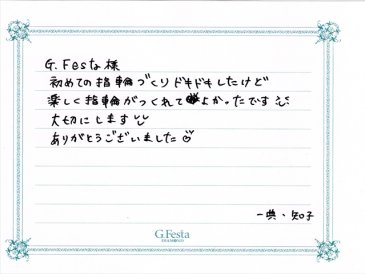 G.Festa様
初めての指輪づくりドキドキしたけど
楽しく指輪がつくれてよかったです
大切にします
ありがとうございました
一典・知子
G.Festa
DIAMOND